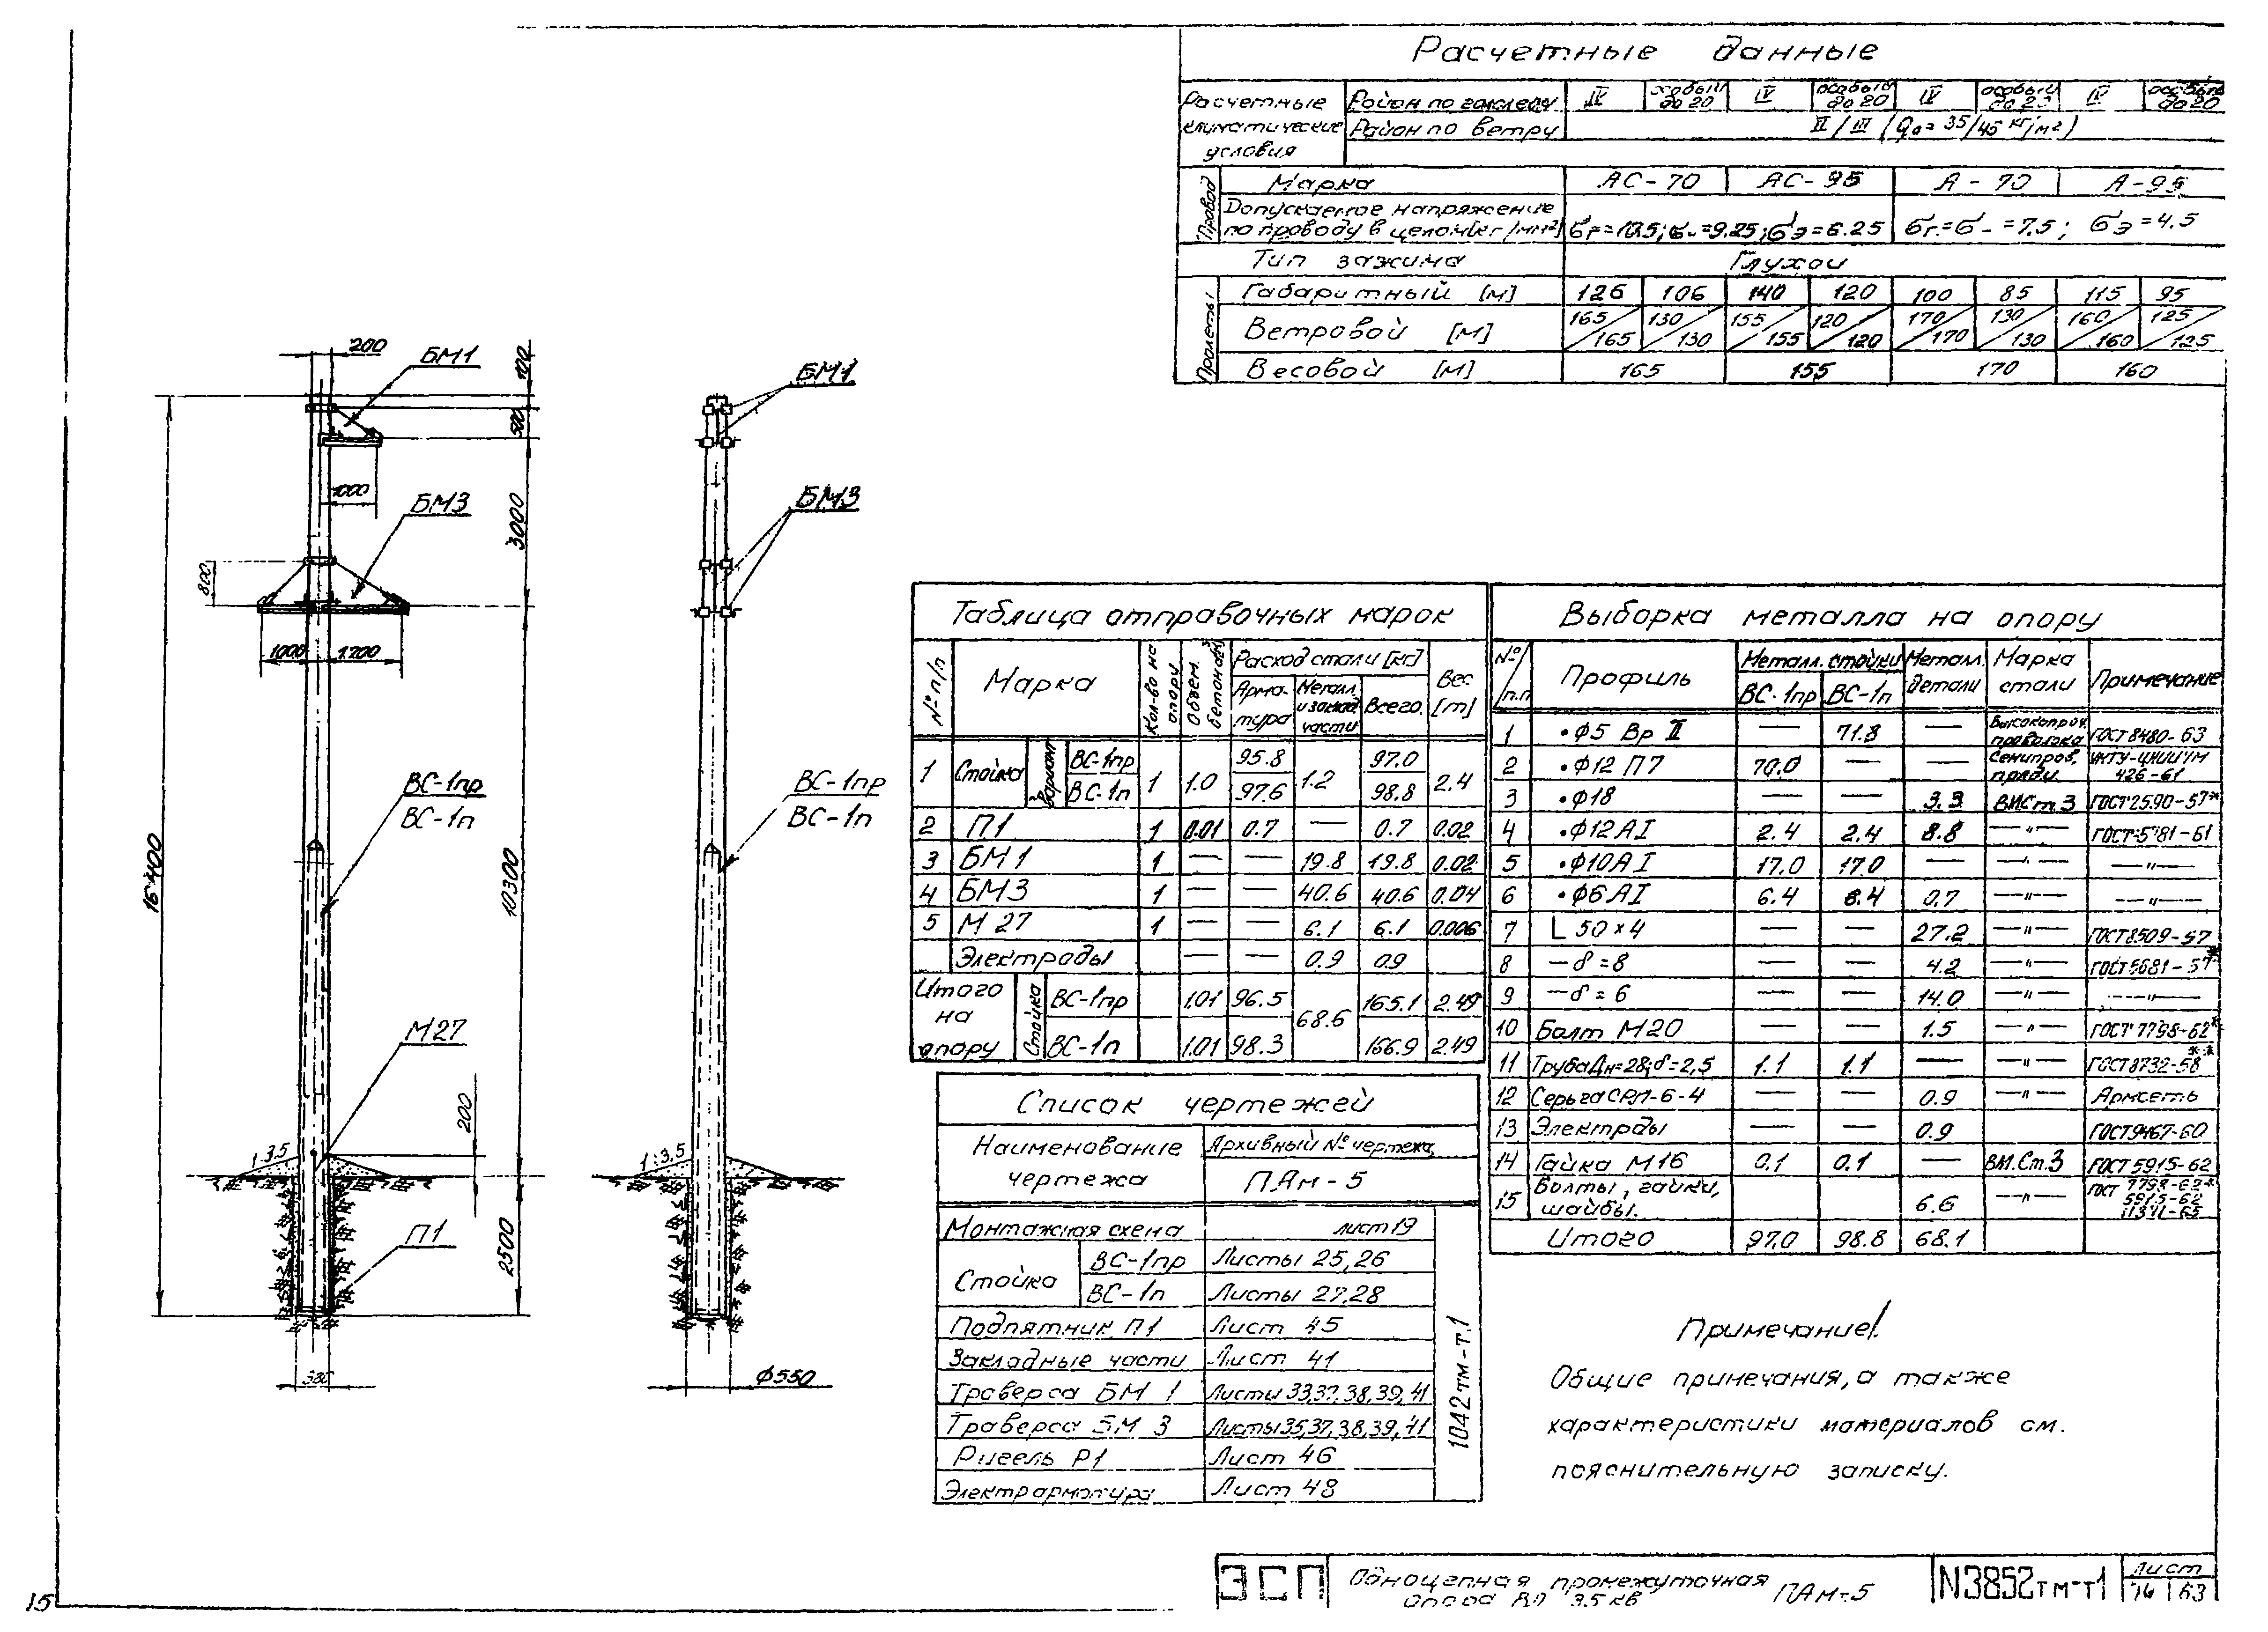 Расчетные данные
Расчетные климатические условия
Район по гололеду IV особый до 20 IV особый до 20 IV особый до 20 IV особый до 20
Район по ветру II / III (q₀ = 35/45 кг/м²)
Провод
Марка АС-70 АС-95 А-70 А-95
Допускаемое напряжение
по проводу в целом [кг/мм²] бг=10.5; б-=9.25; бэ=6.25 бг=б-=7.5; бэ=4.5
Тип зажима Глухой
Пролеты
Габаритный [м] 126 106 140 120 100 85 115 95
Ветровой [м] 165/165 130/130 155/155 120/120 170/170 130/130 160/160 125/125
Весовой [м] 165 155 170 160
200
БМ1
100
500
1000
БМ3
3000
800
1000 1200
ВС-1пр
ВС-1п
16400
10300
М27
200
1:3,5
П1
2500
БМ1
БМ3
ВС-1пр
ВС-1п
1:3,5
ф550
Таблица отправочных марок
№ п/п Марка Кол-во на опору Объем бетона м³ Расход стали [кг] Вес [т]
Арматура Металл. и заклад. части Всего
1 Стойка вариант ВС-1пр 1 1.0 95.8 1.2 97.0 2.4
ВС-1п 97.6 98.8
2 П1 1 0.01 0.7 — 0.7 0.02
3 БМ1 1 — — 19.8 19.8 0.02
4 БМ3 1 — — 40.6 40.6 0.04
5 М 27 1 — — 6.1 6.1 0.006
Электрады — — 0.9 0.9
Итого на опору Стойка ВС-1пр 1.01 96.5 68.6 165.1 2.49
ВС-1п 1.01 98.3 166.9 2.49
Выборка металла на опору
№ п.п Профиль Металл. стойки Металл. детали Марка стали Примечание
ВС-1пр ВС-1п
1 •ф5 Вр II — 71.8 — Высокопроч. проволока ГОСТ 8480-63
2 •ф12 П7 70.0 — — Семипров. пряди 426-61
3 •ф18 — — 3.3 ВМСт.3 ГОСТ 2590-57*
4 •ф12АI 2.4 2.4 8.8 —"— ГОСТ-5781-61
5 •ф10АI 17.0 17.0 — —"— —"—
6 •ф6АI 6.4 6.4 0.7 —"— —"—
7 L 50×4 — — 27.2 —"— ГОСТ 8509-57
8 —δ=8 — — 4.2 —"— ГОСТ 5681-57*
9 —δ=6 — — 14.0 —"— —"—
10 Болт М20 — — 1.5 —"— ГОСТ 7798-62*
11 Труба Дн=28; δ=2,5 1.1 1.1 — —"— ГОСТ 8732-58**
12 Серьга СРЛ-6-4 — — 0.9 —"— Армсеть
13 Электрады — — 0.9 ГОСТ 9467-60
14 Гайка М16 0.1 0.1 — ВМ.Ст.3 ГОСТ 5915-62
15 Болты, гайки, шайбы. 6.6 —"— ГОСТ 7798-62* 5915-62 11371-65
Итого 97.0 98.8 68.1
Список чертежей
Наименование чертежа Архивный № чертежа
ПАм-5
Монтажная схема лист 19
Стойка ВС-1пр Листы 25,26
ВС-1п Листы 27,28
Подпятник П1 Лист 45
Закладные части Лист 41
Траверса БМ 1 Листы 33,37,38,39,41
Траверса БМ 3 Листы 35,37,38,39,41
Ригель Р1 Лист 46
Электроарматура Лист 48
1042тм-т.1
Примечание!
Общие примечания, а также
характеристики материалов см.
пояснительную записку.
ЭСП
Одноцепная промежуточная
опора ВЛ 35 кв
ПАм-5
N3852тм-т1
Лист
14 63
15